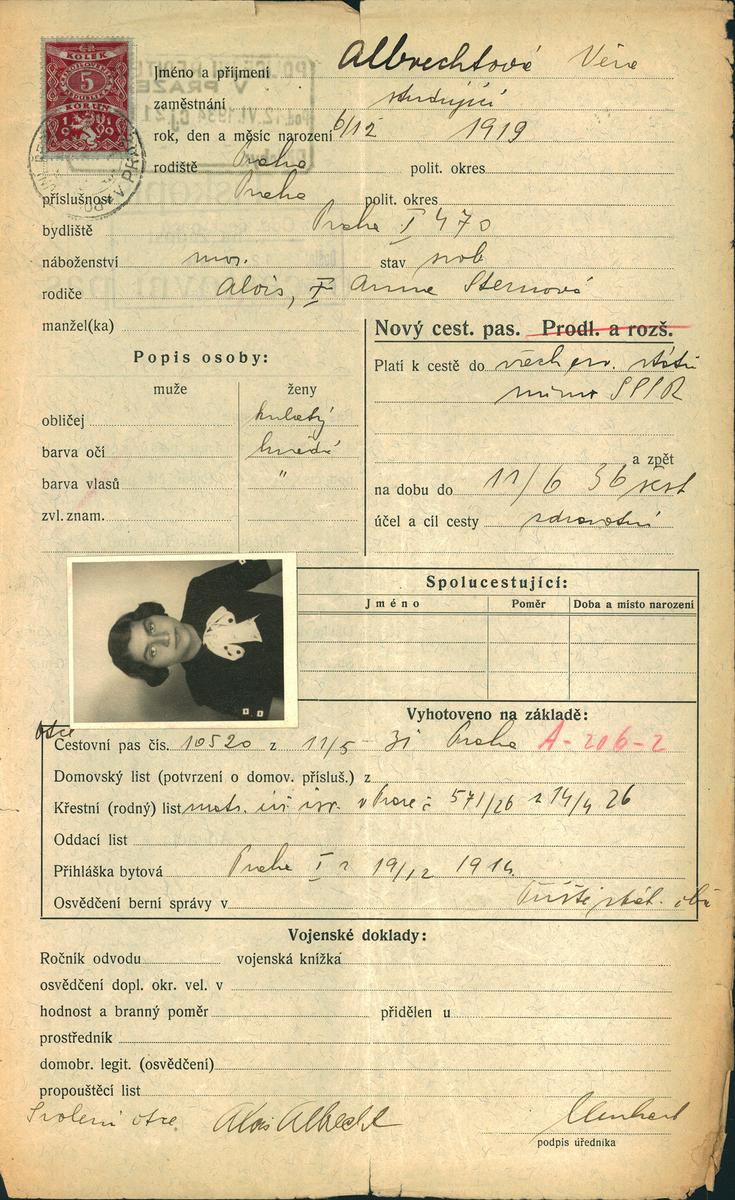 KOLEK
5
KORUN
1919
Jméno a příjmení Albrechtová Věra
zaměstnání studující
rok, den a měsíc narození 6/12 1919
rodiště Praha polit. okres
příslušnost Praha polit. okres
bydliště Praha I 470
náboženství mos. stav svob
rodiče Alois, † Anna Sternová
manžel(ka)
Nový cest. pas. Prodl. a rozš.
Popis osoby:
muže ženy
obličej kulatý
barva očí hnědá
barva vlasů "
zvl. znam.
Platí k cestě do všech evr. států
mimo SSSR
a zpět
na dobu do 11/6 36 šest
účel a cíl cesty zdravotní
Spolucestující:
Jméno Poměr Doba a místo narození
Vyhotoveno na základě:
otce
Cestovní pas čís. 10520 z 11/5 31 Praha A-206-2
Domovský list (potvrzení o domov. přísluš.) z
Křestní (rodný) list matr. isr. v Praze č 571/26 z 14/4 26
Oddací list
Přihláška bytová Praha I z 19/12 1914
Osvědčení berní správy v stát. obč
Vojenské doklady:
Ročník odvodu vojenská knížka
osvědčení dopl. okr. vel. v
hodnost a branný poměr přidělen u
prostředník
domobr. legit. (osvědčení)
propouštěcí list
Svolení otce. Alois Albrecht
podpis úředníka